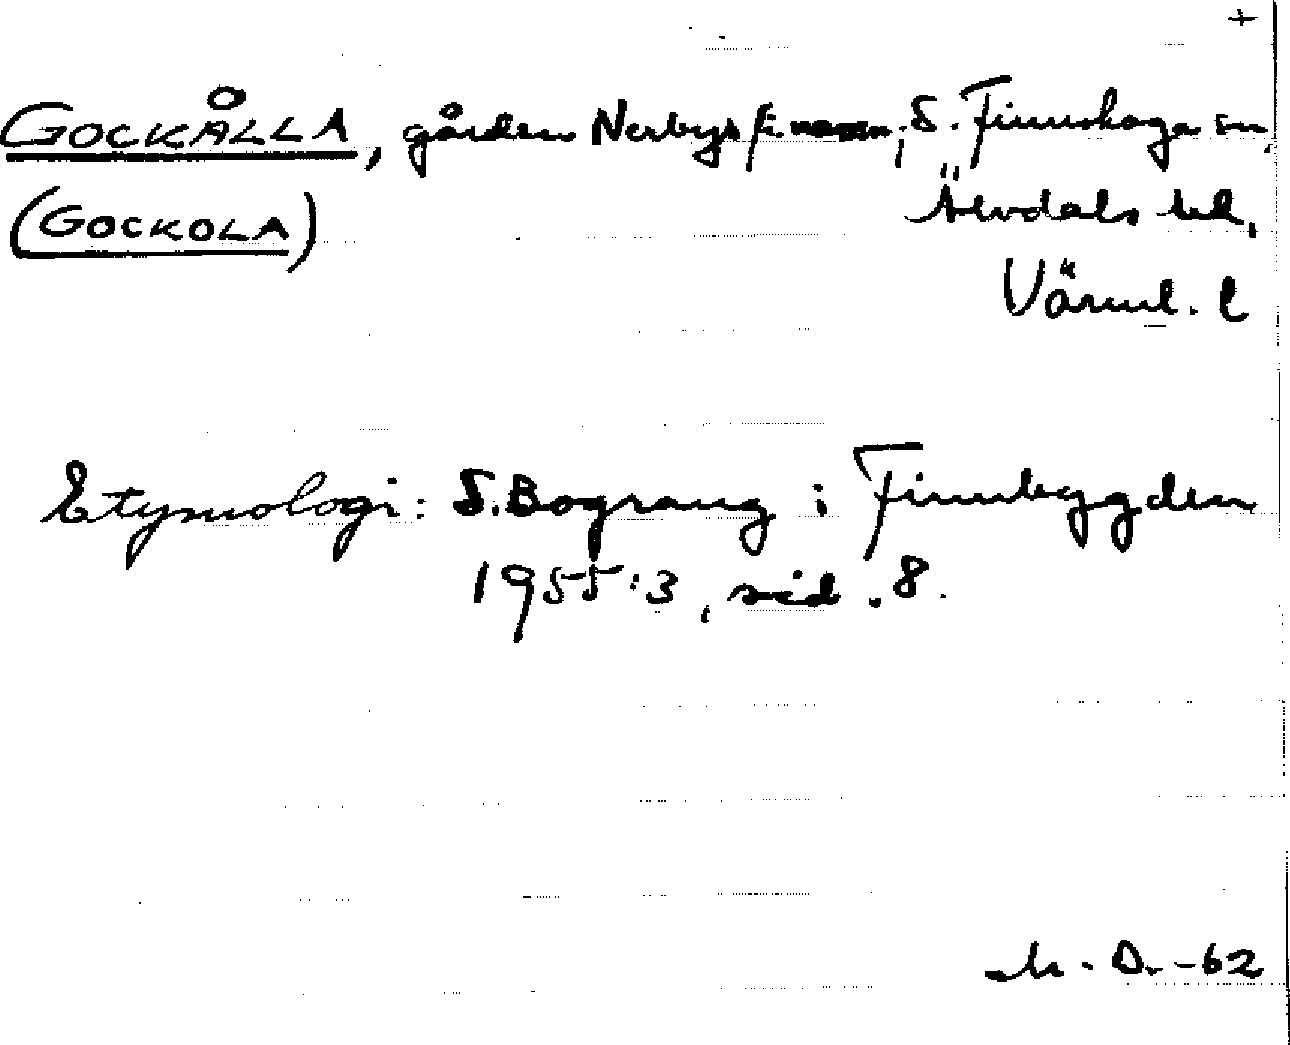 +
GOCKÅLLA, gården Nerbys f. namn; S. Finnskoga sn,
(GOCKOLA) Älvdals hd,
Värml. l
Etymologi: S. Bograng i Finnbygden
1955:3, sid. 8.
M. D. -62